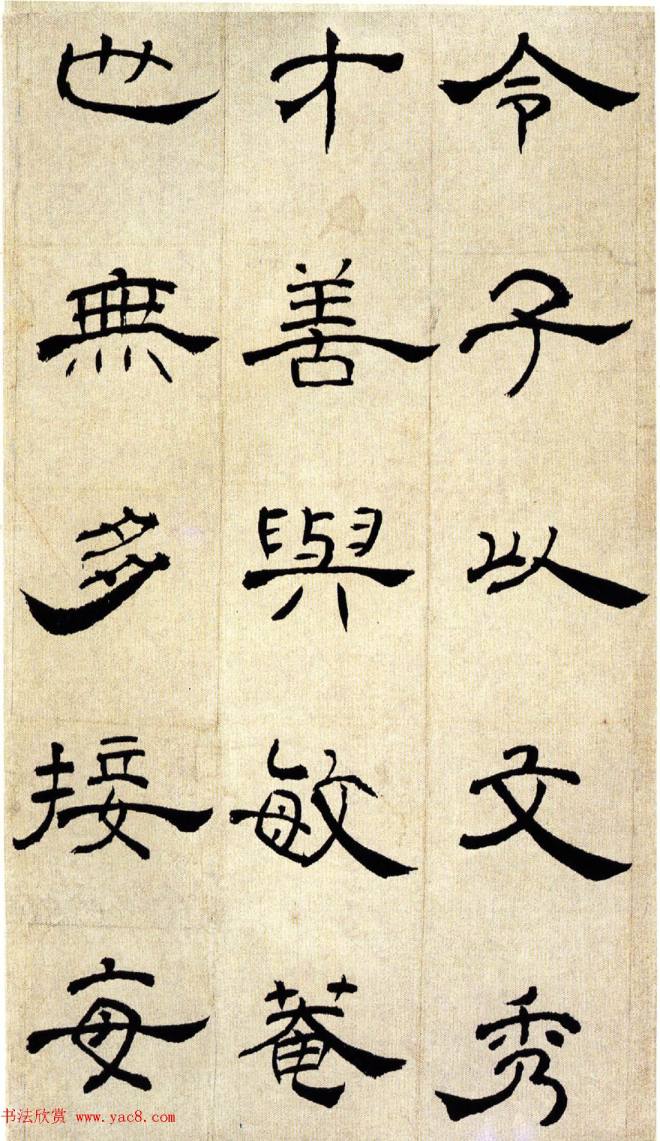 令子以文秀
才善與敏菴
世無多接每
书法欣赏 www.yac8.com